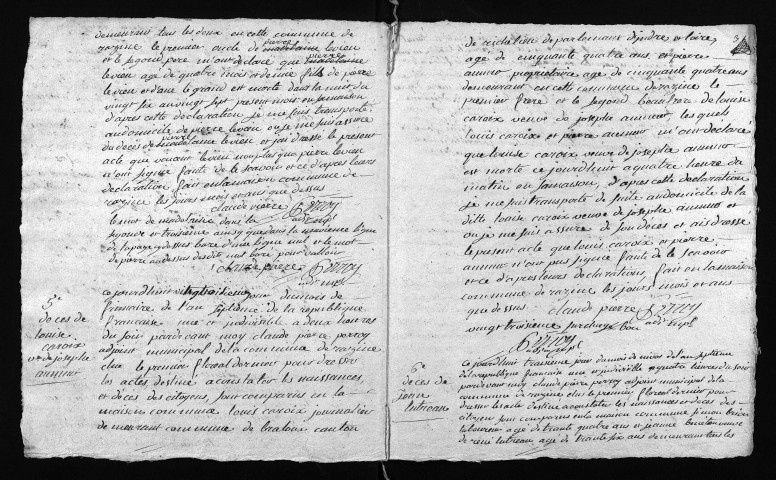 demeurant tous les deux en cette commune de
razine le premier oncle de pierre levieu
et le segond pere m'ont declaré que pierre
levieu agé de quatre mois et demie fils de pierre
levieu et d'ane le grand est morte dans la nuit du
vingt six au vingt sept present mois en sa maison
d'apres cette declaration je me suis transporté
au domicile de pierre levieu ou je me suis assuré
du déces de pierre levieu et j'ai dressé le present
acte que levieu non plus que pierre levieu
n'ont signé faute de le scavoir et ce d'apres leurs
declaration fait en la maison commune de
razine les jours mois et ans que dessus
claude pierre Perroy
le mot de dans la
segonde et troisieme ainsy que dans la neuvieme ligne
de la page dessus baré d'une ligne nul et le mot
de pierre au dessus desdit mot baré pour valloir
claude pierre Perroy
adj mpl
5e
deces de
louise
caroix
ve de josephe
aumont
ce jourdhuit vingtroisieme jour du mois de
frimaire de l'an septieme de la republique
française une et indivisible a deux heures
du soir pardevant moy claude pierre perroy
adjoint municipal de la commune de razine
elue le premier floreal dernier pour dresser
les actes destiné a constater les naissances
et deces des citoyens, sont comparus en la
maison commune louis caroix journalier
demeurant commune de bralou canton
3
de richelieu departement d'indre et loire,
age de cinquante quatre ans, et pierre
aumont propriettaire age de cinquante quatre ans
demeurant en cette commune de razine le
premier frere et le segond beaufrere de louise
caroix veuve de josephe aumont, les quels
louis caroix et pierre aumont m'ont declaré
que louise caroix veuve de josephe aumont
est morte ce jourdhuit a quatre heure du
matin en sa maison, d'apres cette declaration
je me suis transporté de suite au domicile de la
ditte louise caroix veuve de josephe aumont et
ou je me suis assuré de son deces et ais dressé
le present acte que louis caroix et pierre
aumont n'ont pas signé faute de le scavoir
et ce d'apres leurs declarations, fait en la maison
commune de razine les jours mois et ans
que dessus claude pierre Perroy
adj mpl
vingt troisieme surchargé bon
Perroy
adj mpl
6e
deces de
jean
lutreau
ce jourdhuit troisieme jour du mois de nivos de l'an septieme
de la republique française une et indivisible a quatre heures du soir
pardevant moy claude pierre perroy adjoint municipal de la
commune de razine elue le premier floreal dernier pour
dresser les acte destiné a constater les naissances et deces des
citoyens sont comparus en la maison commune simon
laboureur agé de trante quatre ans et jeanne
de rené lutreau agé de trante six ans demeurant tous les